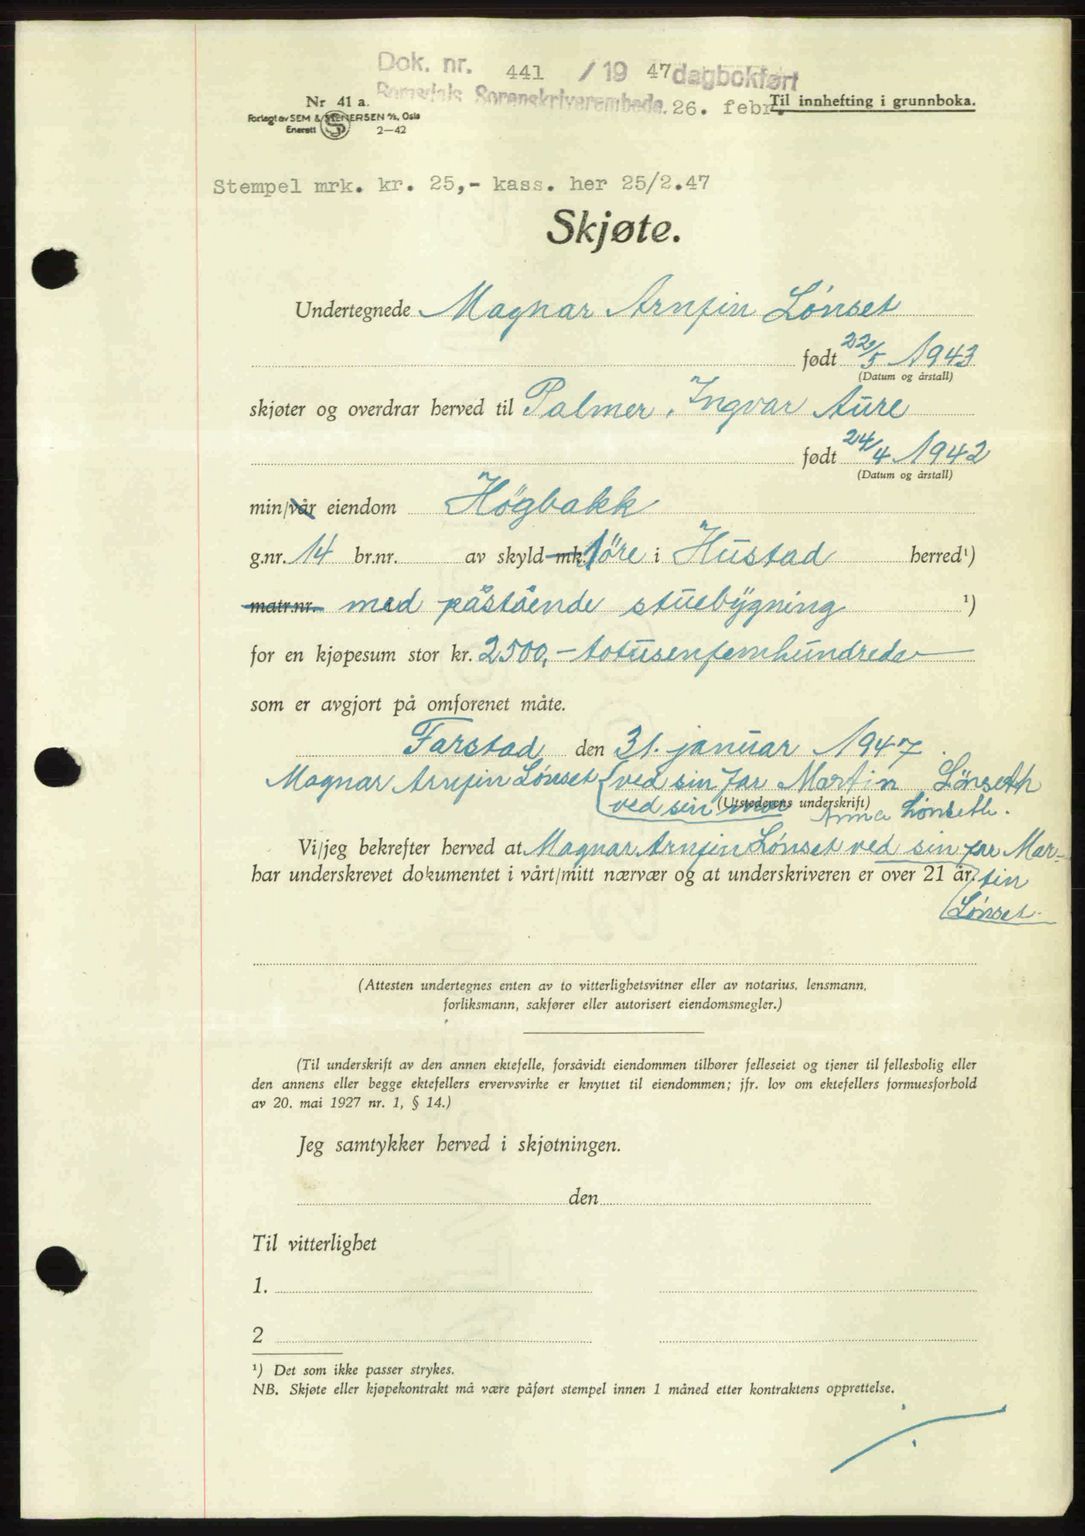 Dok. nr. 441 / 1947 dagbokført
Romsdals Sorenskriverembede. 26. febr.
Til innhefting i grunnboka.
Nr 41 a.
Forlagt av SEM & STENERSEN A/S, Oslo
Enerett 2—42
Stempel mrk. kr. 25,- kass. her 25/2.47
Skjøte.
Undertegnede Magnar Arnfin Lønset
født 22/5 1943
(Datum og årstall)
skjøter og overdrar herved til Palmer Ingvar Aure
født 24/4 1942
(Datum og årstall)
min/vår eiendom Högbakk
g.nr. 14 br.nr. av skyld mk. 1 öre i Hustad herred¹)
matr.nr. med påstående stuebygning ¹)
for en kjøpesum stor kr. 2500,- totusenfemhundrede
som er avgjort på omforenet måte.
Farstad den 31. januar 1947.
Magnar Arnfin Lønset (ved sin far Martin Lønseth
ved sin mor Anna Lønseth.
(Utstederens underskrift)
Vi/jeg bekrefter herved at Magnar Arnfin Lønset ved sin far Mar-
har underskrevet dokumentet i vårt/mitt nærvær og at underskriveren er over 21 år. tin
Lønset.
(Attesten undertegnes enten av to vitterlighetsvitner eller av notarius, lensmann,
forliksmann, sakfører eller autorisert eiendomsmegler.)
(Til underskrift av den annen ektefelle, forsåvidt eiendommen tilhører felleseiet og tjener til fellesbolig eller
den annens eller begge ektefellers ervervsvirke er knyttet til eiendommen; jfr. lov om ektefellers formuesforhold
av 20. mai 1927 nr. 1, § 14.)
Jeg samtykker herved i skjøtningen.
den
Til vitterlighet
1.
2
¹) Det som ikke passer strykes.
NB. Skjøte eller kjøpekontrakt må være påført stempel innen 1 måned etter kontraktens opprettelse.